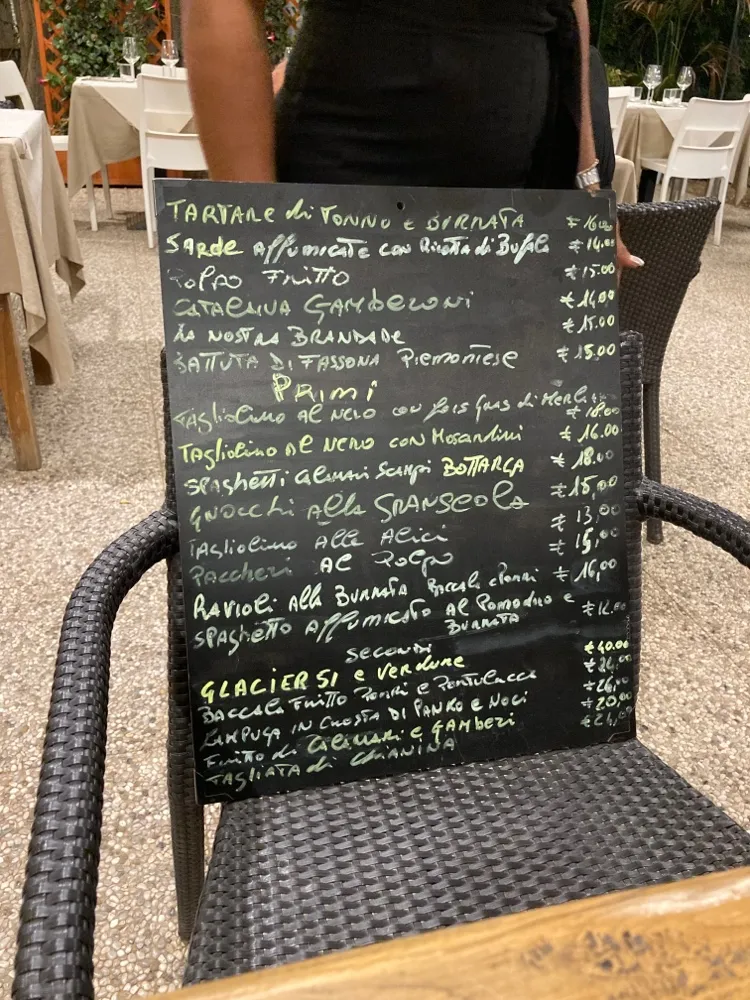 TARTARE di TONNO e BURRATA € 16.00
SARDE Affumicate con Ricotta di Bufala € 14.00
Polpo Fritto € 15.00
CATALANA GAMBERONI € 14.00
LA NOSTRA BRANDADE € 15.00
BATTUTA DI FASSONA Piemontese € 15.00
PRIMI
Tagliolino al Nero con fois Gras di € 18.00
Tagliolino al NERO con € 16.00
SPAghetti Calamari Scampi BOTTARGA € 18.00
GNOCCHI Alla GRANSEOLA € 15,00
Tagliolino Alle Alici € 13,00
Paccheri AL Polpo € 15,00
RAVIOLI Alla BURRATA Baccalà e € 16,00
SPAghetto Affumicato Al Pomodoro e € 12.00
BURRATA
SECONDI
GLACIER 51 e VERDURE € 40.00
BACCALà FRITTO Porri e € 24,00
LAMPUGA IN CROSTA DI PANKO e NOCI € 26,00
Fritto di Calamari e GAMBERI € 20,00
TAGLIATA di CHIANINA € 24,00